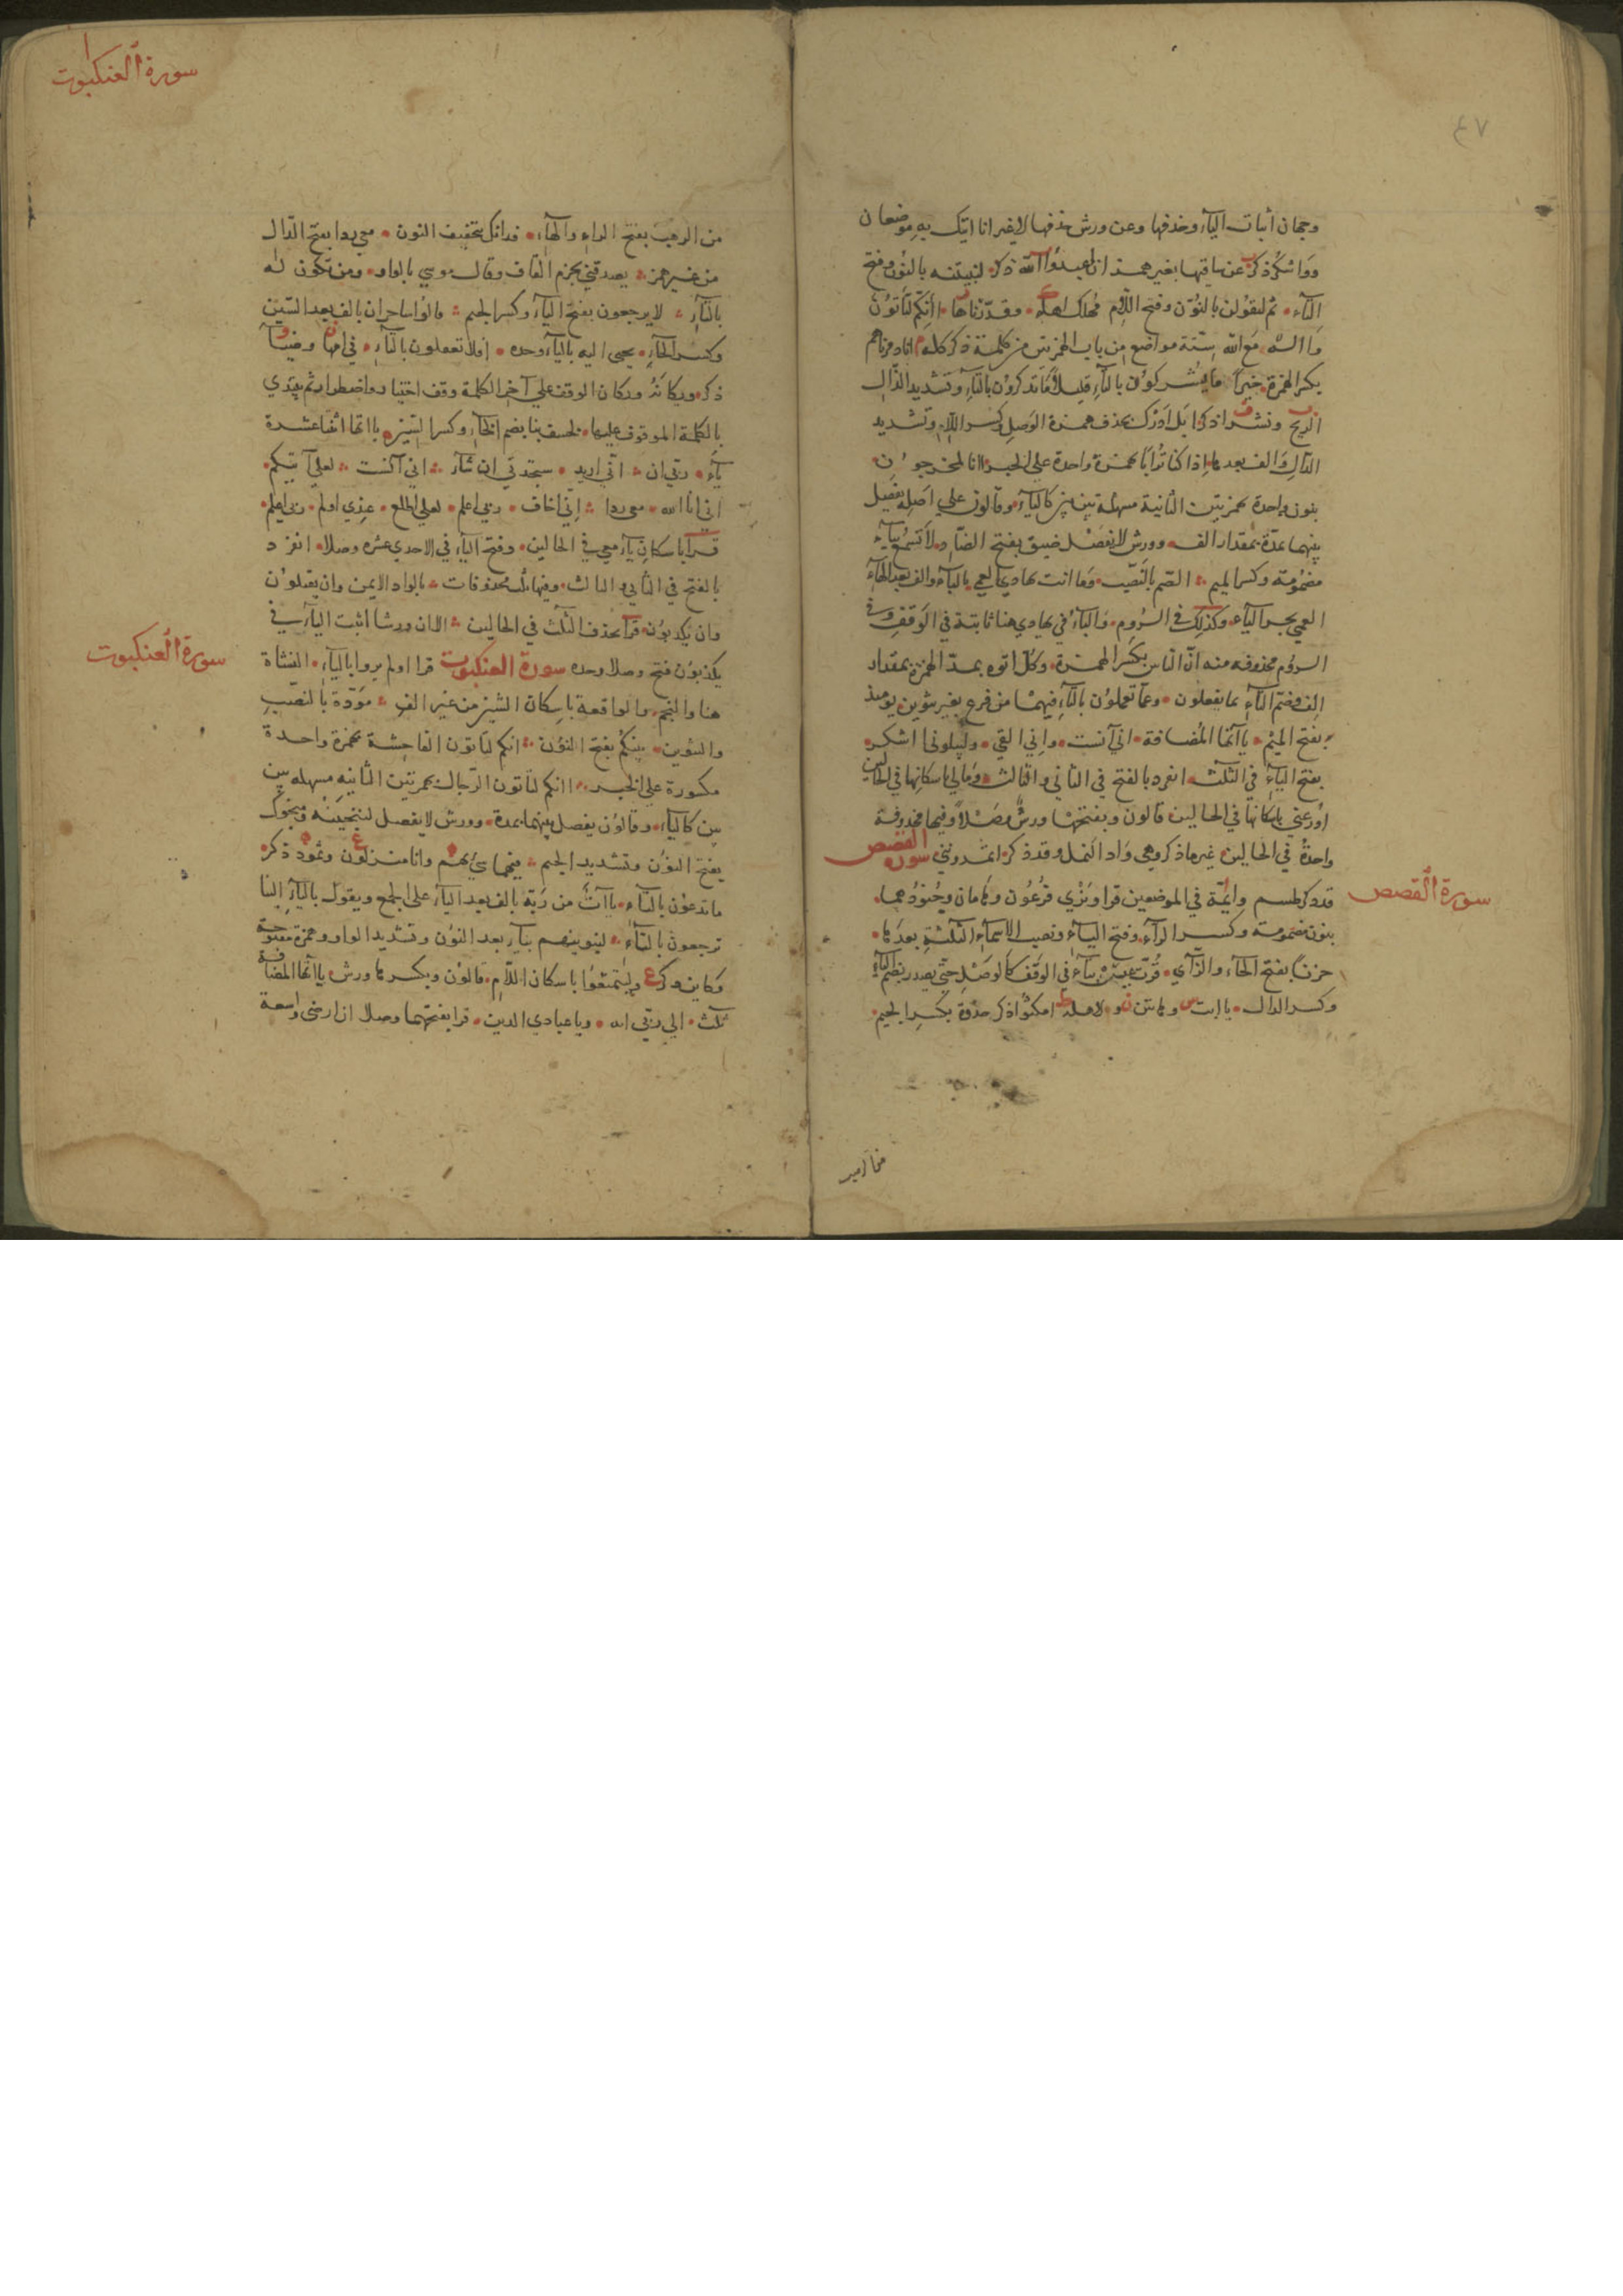 ٤٧
وجهان اثبات الياء وحذفها وعن ورش حذفها لا غير انا اتيك به موضعان
عن ساقيها بغير همز ان اعبدوا الله ذكر لنبيتنه بالنون وفتح
التاء ثم لنقولن بالنون وفتح اللام مهلك اهله وقدرناها ائنكم لتاتون
مع الله ستة مواضع من باب الهمزتين من كلمة ذكر كله انا دمرناهم
بكسر الهمزة خير اما يشركون بالتاء قليلا ما تذكرون بالتاء وتشديد الذال
الريح ونشرا ذكرا بل ادرك بحذف همزة الوصل وكسر اللام وتشديد
الدال والف بعدها اذا كنا ترابا بهمزة واحدة على الخبر اانا لمخرجون
بنون واحدة بهمزتين الثانية مسهلة بين بين كالياء وقالون على اصله يفصل
بينهما بمدة بمقدار الف وورش لا يفصل ضيق بفتح الضاد لا تسمع بتاء
مضمومة وكسر الميم الصم بالنصب وما انت بهادي العمي بالباء والف بعد الهاء
العمي بجر الياء وكذلك في الروم والياء في بهادي هنا ثابتة في الوقف وفي
الروم محذوفه منه ان الناس بكسر الهمزة وكل اتوه بمد الهمزة بمقدار
الف وضم التاء بما يفعلون وعما تعملون بالتاء فيهما من فزع بغير تنوين يومئذ
بفتح الميم ياآتها المضافة اني آنست واني القي وليبلوني ااشكر
بفتح الياء في الثلث انفرد بالفتح في الثاني والثالث ومالي باسكانها في الحالين
اوزعني باسكانها في الحالين قالون وبفتحها ورش وصلا وفيها محذوفة
واحدة في الحالين غير ما ذكر وهي واد النمل وقد ذكر اتمدونني سورة القصص
سورة القصص
قد ذكر طسم وايمة في الموضعين قرا ونري فرعون وهامان وجنودهما
بنون مضمومة وكسر الراء وفتح الياء ونصب الاسماء الثلثة بعدها
حزنا بفتح الحاء والزاي قرت عين بتاء في الوقف كالوصل حتى يصدر بضم الياء
وكسر الدال يا ابت وهاتين ولاهله امكثوا ذكر جذوة بكسر الجيم
سورة العنكبوت
من الرهب بفتح الراء والهاء فذانك بتخفيف النون معي ردا بفتح الدال
من غير همز يصدقني بجزم القاف وقال موسي بالواو ومن تكون له
بالتاء لا يرجعون بفتح الياء وكسر الجيم قالوا ساحران بالف بعد السين
وكسر الحاء يجبى اليه بالياء وحده افلا تعقلون بالتاء في امها وضياء
ذكر ويكان ويكانه الوقف على آخر الكلمة وقف اختيار واضطرار ثم يبتدي
بالكلمة الموقوف عليها لخسف بنا بضم الخاء وكسر السين ياآتها اثنا عشرة
ياء ربي ان اني اريد ستجدني ان شاء اني آنست لعلي آتيكم
اني انا الله معي ردا اني اخاف ربي اعلم لعلي اطلع عندي اولم ربي اعلم
قرا باسكان ياء معي في الحالين وفتح الياء في الاحدي عشره وصلا انفرد
بالفتح في الثاني والثالث وفيها ثلث محذوفات بالواد الايمن وان يقتلون
وان يكذبون قرا بحذف الثلث في الحالين الا ان ورشا اثبت الياء في
يكذبون فتح وصلا وحده سورة العنكبوت قرا اولم يروا بالياء النشاة
سورة العنكبوت
هنا والنجم والواقعة باسكان الشين من غير الف مودة بالنصب
والتنوين بينكم بفتح النون انكم لتاتون الفاحشة بهمزة واحدة
مكسورة على الخبر اانكم لتاتون الرجال بهمزتين الثانيه مسهله بين
بين كالياء وقالون يفصل بينهما بمدة وورش لا يفصل لننجينه ومنجوك
بفتح النون وتشديد الجيم فيهما سيء بهم وانا منزلون وثمود ذكر
ما تدعون بالتاء ياآت من ربه بالف بعد الياء على الجمع ويقول بالياء الينا
ترجعون بالتاء لنبوينهم بباء بعد النون وتشديد الواو وهمزة مفتوحة
وكاين ذكر وليتمتعوا باسكان اللام قالون وبكسرها ورش ياآتها المضافة
ثلث الي ربي انه ويا عبادي الذين قرا بفتحهما وصلا ان ارضي واسعة